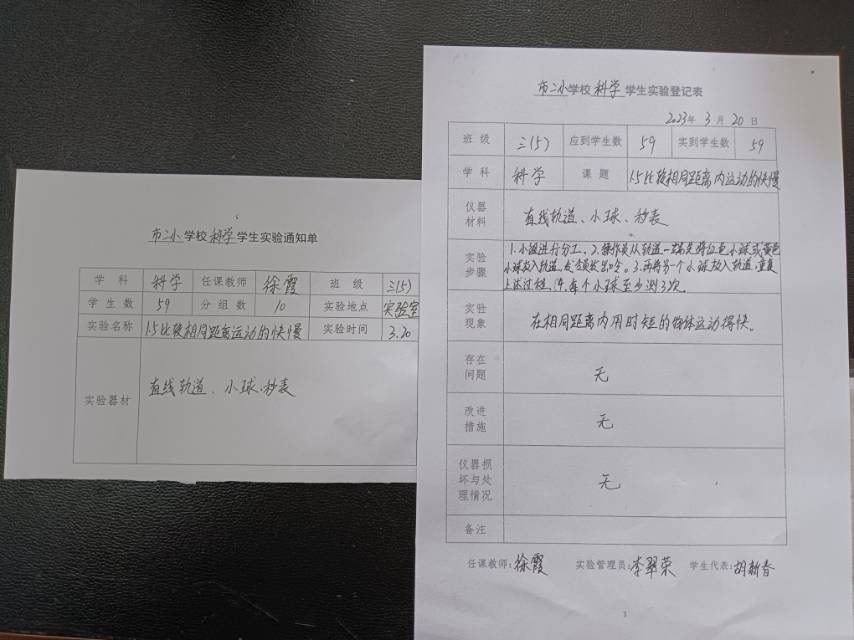 市二小学校科学学生实验通知单
学科 科学 任课教师 徐霞 班级 三(5)
学生数 59 分组数 10 实验地点 实验室
实验名称 15比较相同距离运动的快慢 实验时间 3.20
实验器材 直线轨道、小球、秒表
市二小学校科学学生实验登记表
2023年3月20日
班级 三(5) 应到学生数 59 实到学生数 59
学科 科学 课题 15比较相同距离内运动的快慢
仪器材料 直线轨道、小球、秒表
实验步骤 1.小组进行分工。2.操作员从轨道一端先将红色小球或黄色
小球放入轨道,发令员发出口令。3.再将另一个小球放入轨道,重复
上述过程。4.每个小球至少测3次。
实验现象 在相同距离内用时短的物体运动得快。
存在问题 无
改进措施 无
仪器损坏与处理情况 无
备注
任课教师:徐霞 实验管理员:李翠荣 学生代表:胡新春